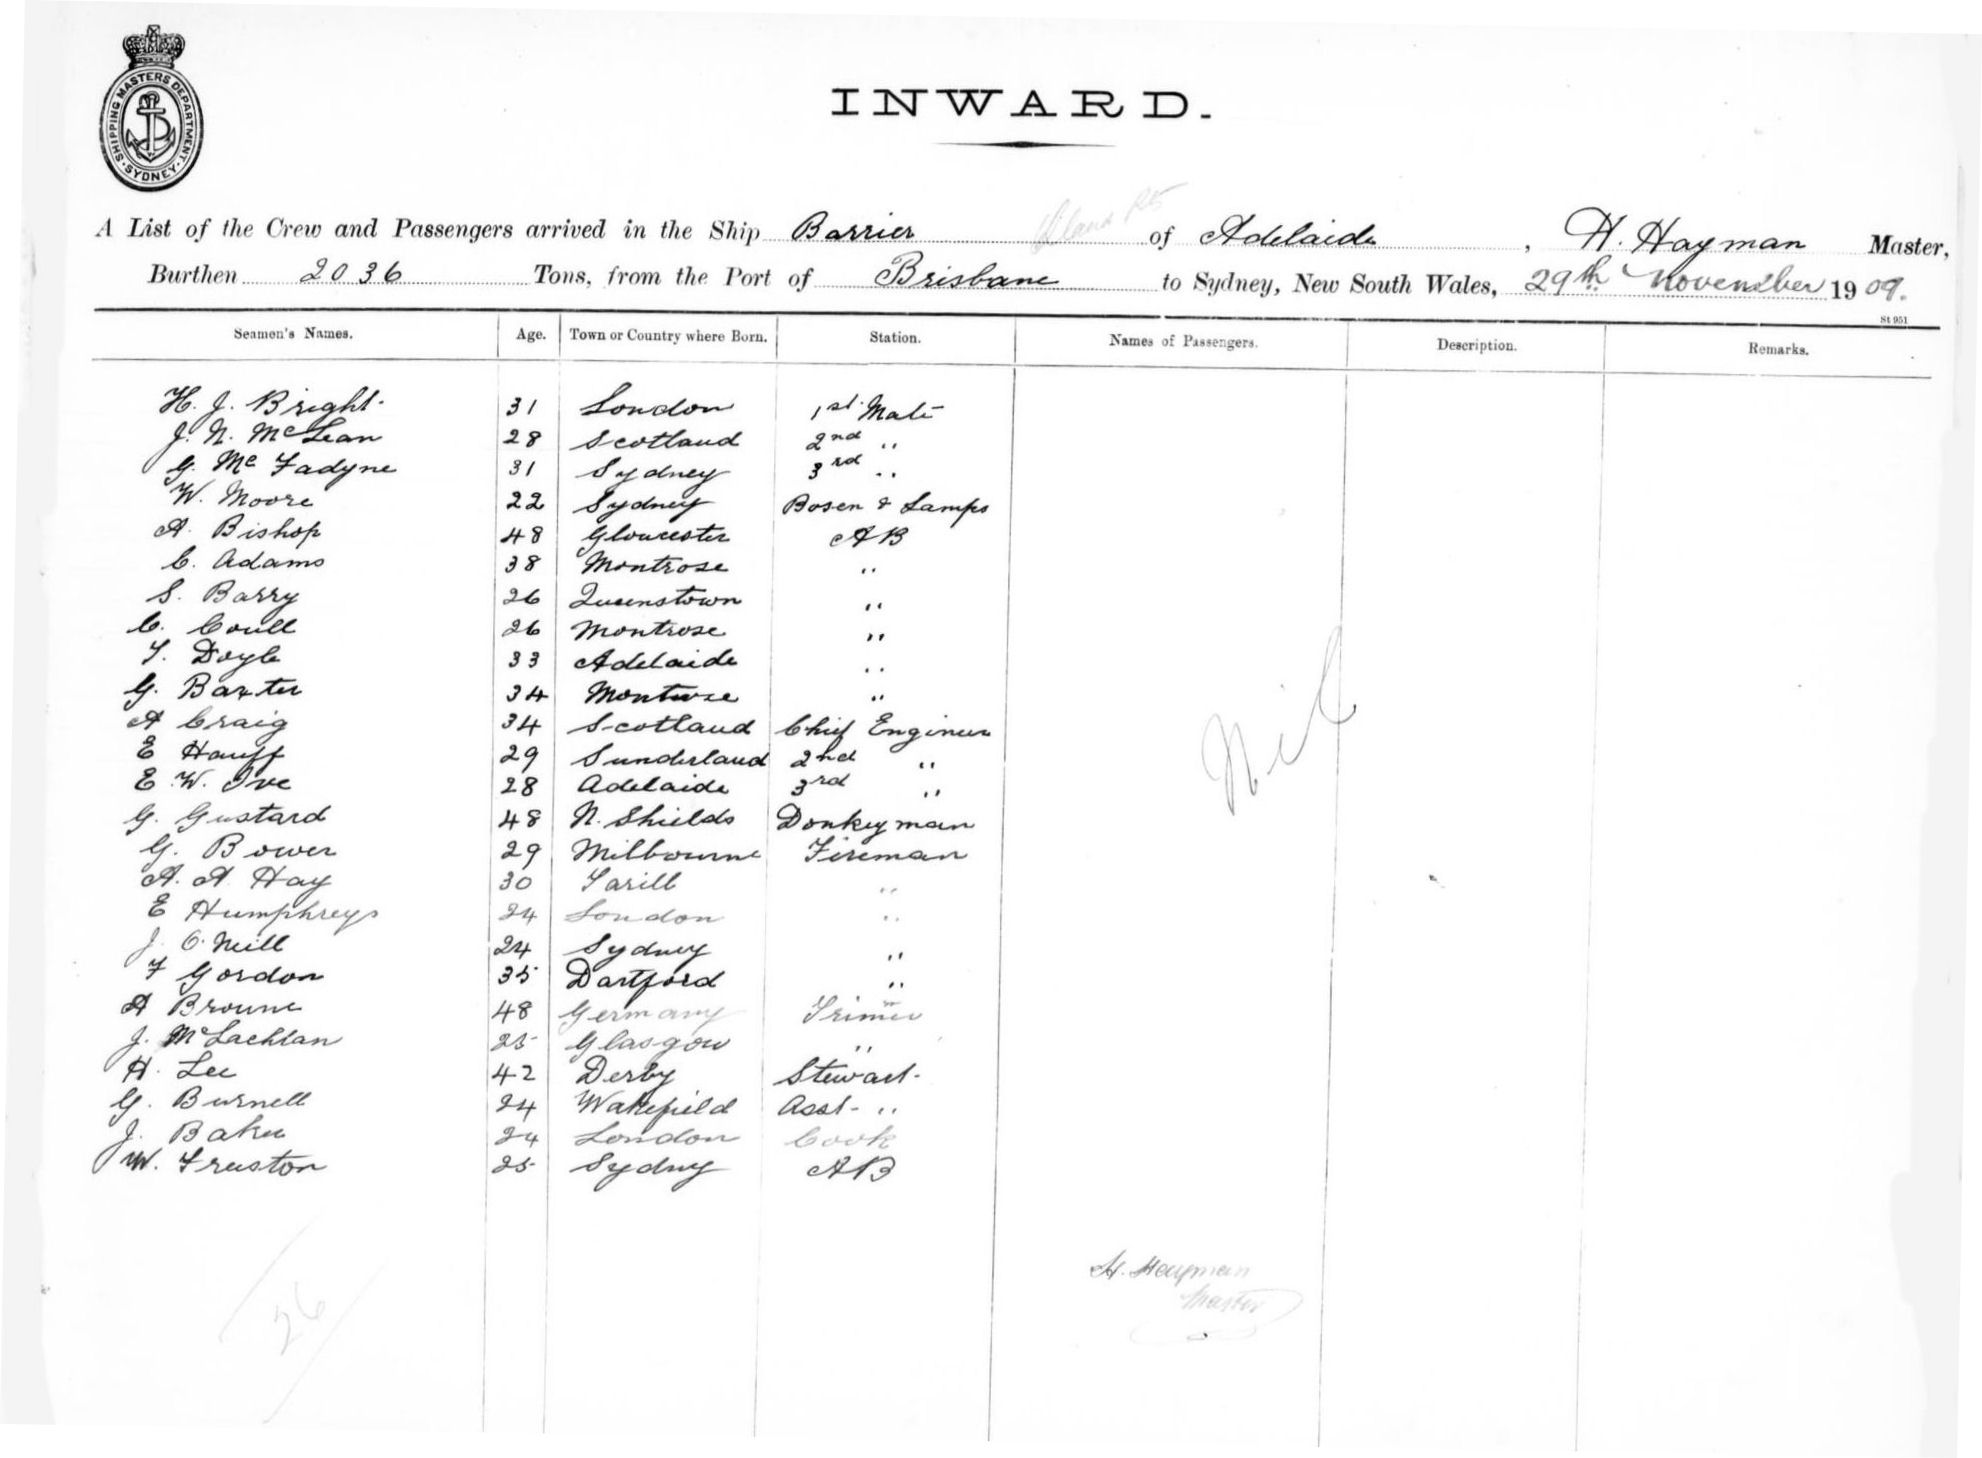 SHIPPING MASTERS DEPARTMENT. SYDNEY
INWARD.
A List of the Crew and Passengers arrived in the Ship Barrier of Adelaide, H. Hayman Master,
Burthen 2036 Tons, from the Port of Brisbane to Sydney, New South Wales, 29th November 1909.
St 951
Seamen's Names. Age. Town or Country where Born. Station. Names of Passengers. Description. Remarks.
H. J. Bright 31 London 1st Mate
J. N. McLean 28 Scotland 2nd "
G. Mc Fadyne 31 Sydney 3rd "
W. Moore 22 Sydney Bosen & Lamps
A. Bishop 48 Gloucester AB
C. Adams 38 Montrose "
S. Barry 26 Queenstown "
C. Coull 26 Montrose "
T. Doyle 33 Adelaide "
G. Baxter 34 Montrose "
A Craig 34 Scotland Chief Engineer
E Hauff 29 Sunderland 2nd "
E. W. Ive 28 Adelaide 3rd "
G. Gustard 48 N. Shields Donkeyman
G. Bower 29 Milbourne Fireman
A. A Hay 30 "
E Humphreys 24 London "
J. O'Neill 24 Sydney "
F Gordon 35 Dartford "
A Browne 48 Germany Trimer
J. McLachlan 25 Glasgow "
H. Lee 42 Derby Steward
G. Burnell 24 Wakefield Asst "
J. Baker 24 London Cook
W. Truston 25 Sydney AB
Nil
H. Hayman
Master
26